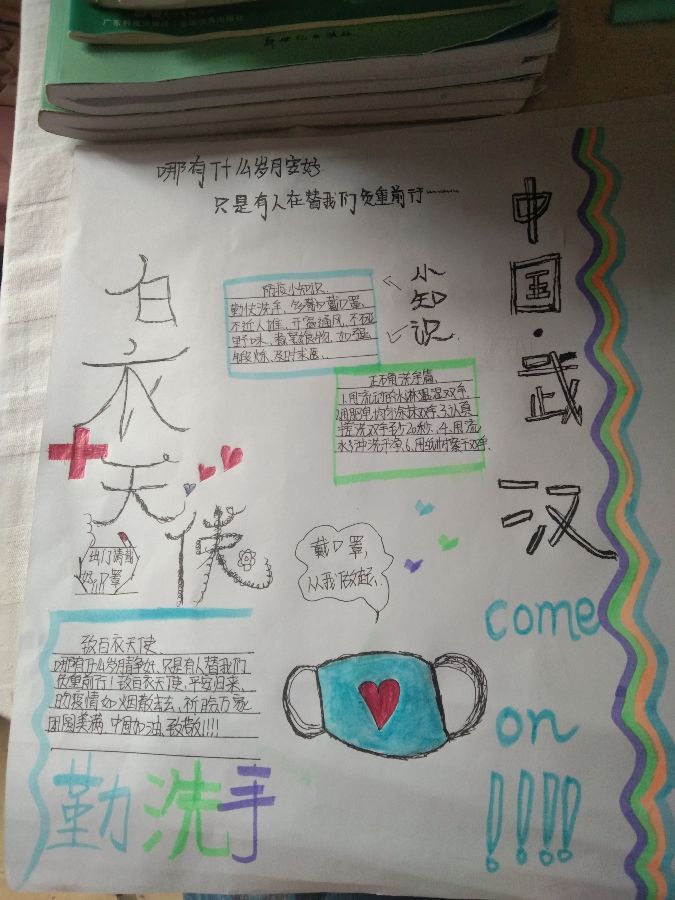 哪有什么岁月安好
只是有人在替我们负重前行……
中国·武汉
come
on
!!!!
白衣天使
小知识
防疫小知识
勤快洗手、多戴口罩、
不近人堆、开窗通风、不碰
野味、煮熟食物、加强
锻炼、及时求医
正确洗手篇
1.用流动的水淋湿双手
抹双手3.认真
搓洗双手至少20秒、4.用流
水冲洗干净
出门请戴
好口罩
戴口罩,
从我做起
致白衣天使
哪有什么岁月静好,只是有人替我们
负重前行!致白衣天使,平安归来,
的疫情如烟散去,祈盼万家
团圆美满,中国加油,致敬!!!!
勤洗手